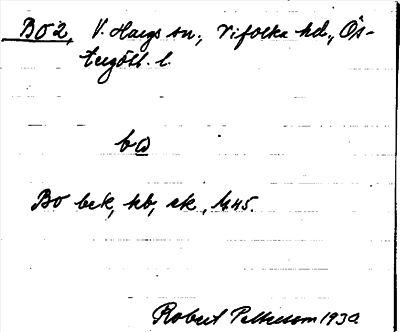 Bö 2, V. Hargs sn., Vifolka hd., Ös-
tergötl. l.
bɷ
Bo bek, kb, ek, 1/445.
Robert Pettersson 1930